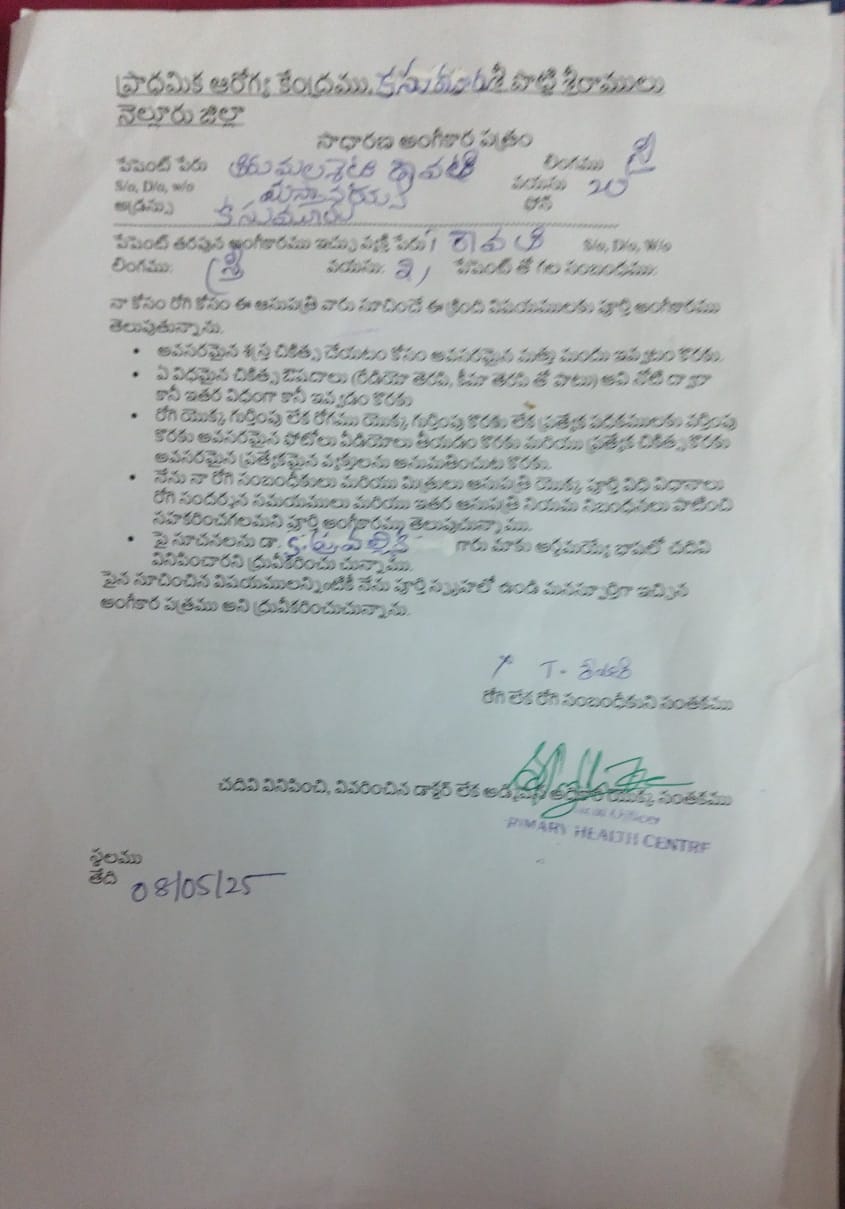 ప్రాధమిక ఆరోగ్య కేంద్రము, కసుమూరు శ్రీ పొట్టి శ్రీరాములు
నెల్లూరు జిల్లా
సాధారణ అంగీకార పత్రం
పేషెంట్ పేరు తిరుమలశెటి శ్రావణి లింగము స్త్రీ
S/o, D/o, w/o వయసు 20
అడ్రస్సు కసుమూరు ఫోన్
పేషెంట్ తరపున అంగీకారము ఇచ్చు వ్యక్తి పేరు: S/o, D/o, W/o
లింగము: స్త్రీ వయసు: పేషెంట్ తో గల సంబందము:
నా కోసం రోగి కోసం ఈ ఆసుపత్రి వారు సూచించే ఈ క్రింది విషయములకు పూర్తి అంగీకారము
తెలుపుతున్నాను.
• అవసరమైన శస్త్ర చికిత్స చేయటం కోసం అవసరమైన మత్తు మందు ఇవ్వటం కొరకు.
• ఏ విధమైన చికిత్స ఔషదాలు (రేడియో తెరపి, కీమా తెరపి తో పాటు) అవి నోటి ద్వారా
కానీ ఇతర విధంగా కానీ ఇవ్వడం కొరకు
• రోగి యొక్క గుర్తింపు లేక రోగము యొక్క గుర్తింపు కొరకు లేక ప్రత్యేక పదకములకు వర్తింపు
కొరకు అవసరమైన ఫోటోలు వీడియోలు తీయడం కొరకు మరియు ప్రత్యేక చికిత్స కొరకు
అవసరమైన ప్రత్యేకమైన వ్యక్తులను అనుమతించుట కొరకు.
• నేను నా రోగి సంబందీకులు మరియు మిత్రులు ఆసుపత్రి యొక్క పూర్తి విధి విధానాలు
రోగి సందర్శన సమయములు మరియు ఇతర ఆసుపత్రి నియమ నిబంధనలు పాటించి
సహకరించగలమని పూర్తి అంగీకారము తెలుపుచున్నాము.
• పై సూచనలను డా. K. ప్రవల్లిక గారు మాకు అర్ధమయ్యే బాషలో చదివి
వినిపించారని ధ్రువీకరించు చున్నాము.
పైన సూచించిన విషయములన్నింటికీ నేను పూర్తి స్పృహలో ఉండి మనస్ఫూర్తిగా ఇచ్చిన
అంగీకార పత్రము అని ధ్రువీకరించుచున్నాను.
T.
రోగి లేక రోగి సంబందీకుని సంతకము
చదివి వినిపించి, వివరించిన డాక్టర్ లేక యొక్క సంతకము
Officer
PRIMARY HEALTH CENTRE
స్థలము
తేది 08/05/25